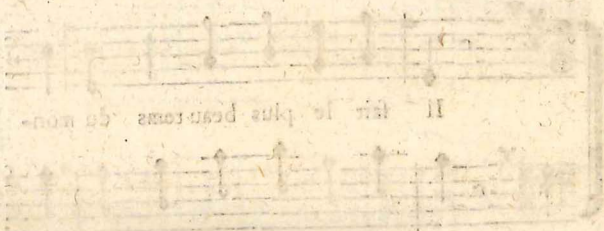 Il fait le plus beau tems du mon-